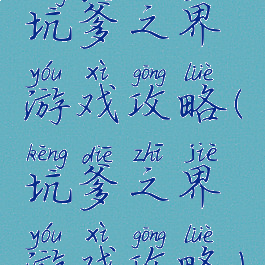 坑爹之界
yóu xì gōng lüè
游戏攻略(
kēng diē zhī jiè
坑爹之界
yóu xì gōng lüè
游戏攻略)